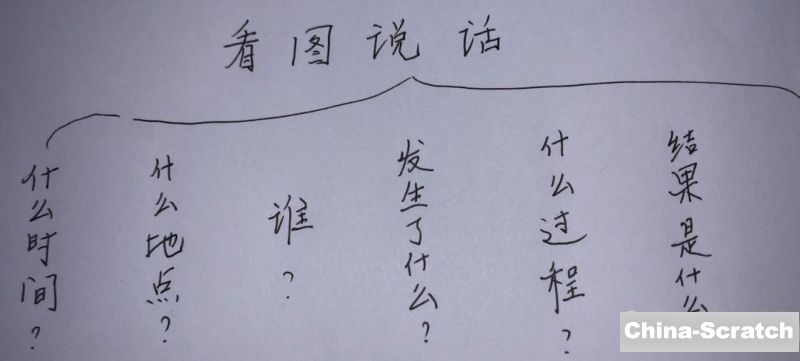 看图说话
什么时间？
什么地点？
谁？
发生了什么？
什么过程？
结果是什么
China-Scratch